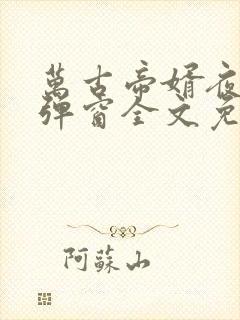 萬古帝婿夜
彈窗全文免
阿蘇山